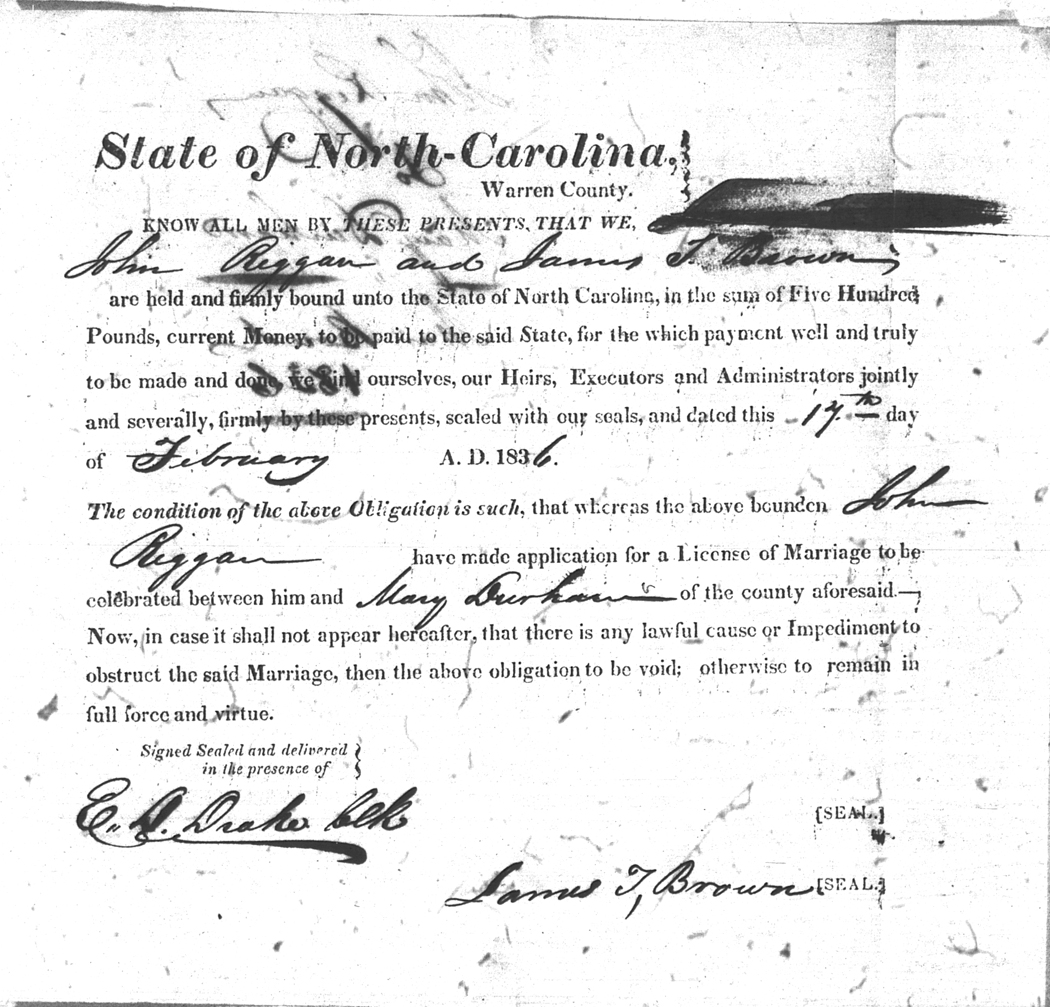 State of North-Carolina,
Warren County.
KNOW ALL MEN BY THESE PRESENTS, THAT WE,
John Riggan and James T. Brown
are held and firmly bound unto the State of North Carolina, in the sum of Five Hundred
Pounds, current Money, to be paid to the said State, for the which payment well and truly
to be made and done, we bind ourselves, our Heirs, Executors and Administrators jointly
and severally, firmly by these presents, sealed with our seals, and dated this 17th day
of February A. D. 1836.
The condition of the above Obligation is such, that whereas the above bounden John
Riggan have made application for a License of Marriage to be
celebrated between him and Mary Durham of the county aforesaid.—
Now, in case it shall not appear hereafter, that there is any lawful cause or Impediment to
obstruct the said Marriage, then the above obligation to be void; otherwise to remain in
full force and virtue.
Signed Sealed and delivered
in the presence of
E. D. Drake Clk
[SEAL.]
James T, Brown [SEAL.]